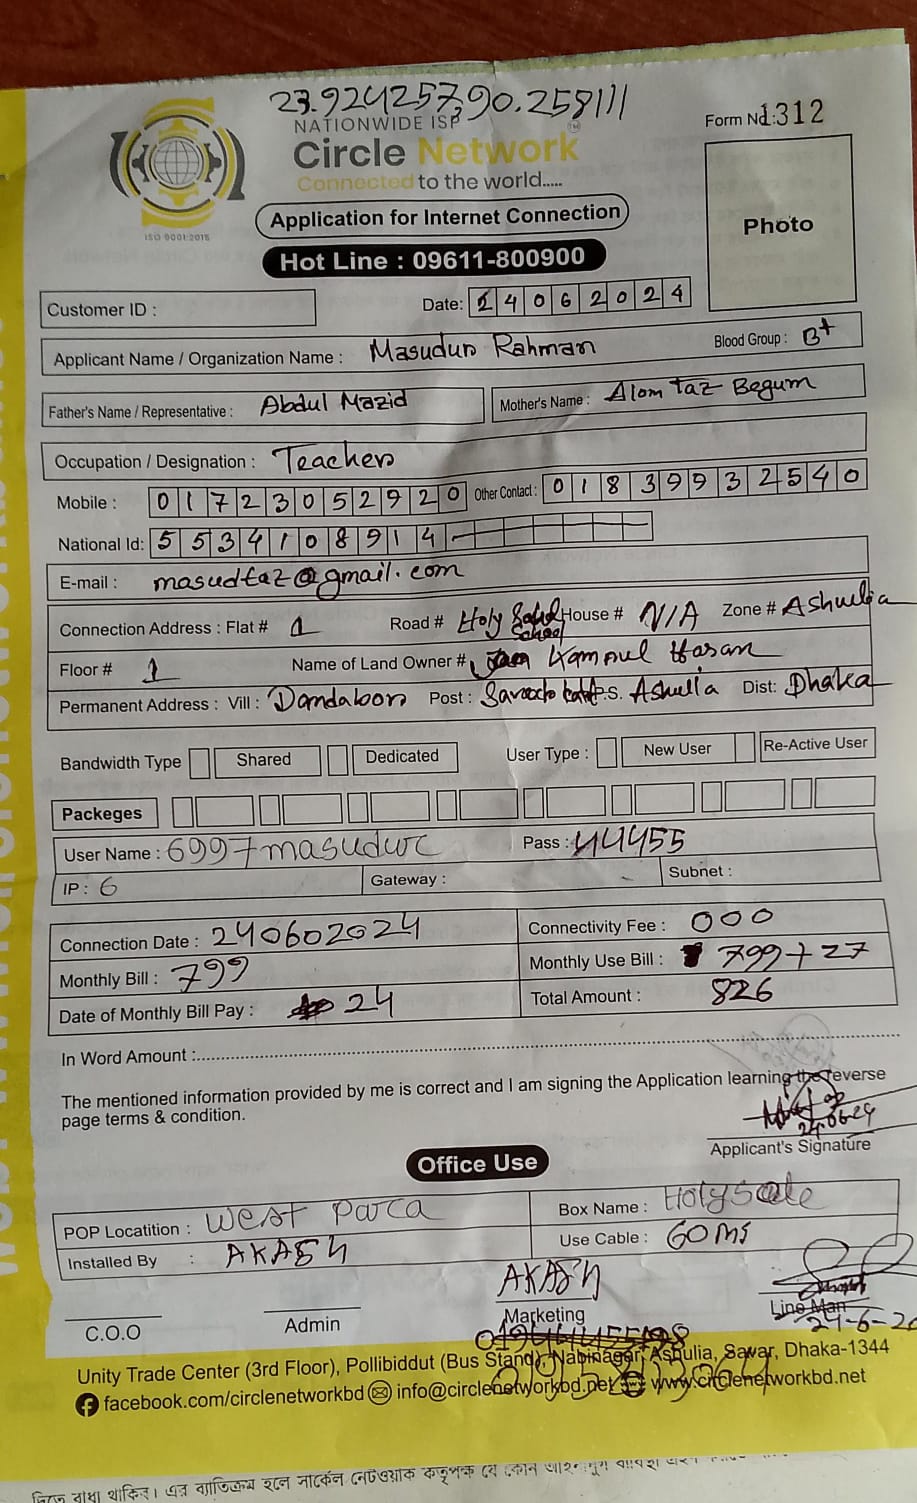 23.924257,90.258111
NATIONWIDE ISP
Form No: 1312
Circle Network
Connected to the world.....
ISO 9001:2015
Application for Internet Connection
Photo
Hot Line : 09611-800900
Customer ID :
Date: 24062024
Applicant Name / Organization Name : Masudur Rahman Blood Group : B+
Father's Name / Representative : Abdul Mazid Mother's Name : Alom Taz Begum
Occupation / Designation : Teacher
Mobile : 01723052920 Other Contact : 01839932540
National Id: 5534108914
E-mail : masudtaz@gmail.com
Connection Address : Flat # 1 Road # Holy School House # N/A Zone # Ashulia
Floor # 1 Name of Land Owner # Kamrul Hasan
Permanent Address : Vill : Dandabor Post : P.S. Ashulia Dist: Dhaka
Bandwidth Type Shared Dedicated User Type : New User Re-Active User
Packeges
User Name : 6997masudwc Pass : 44455
IP : 6 Gateway : Subnet :
Connection Date : 240602024 Connectivity Fee : 000
Monthly Bill : 799 Monthly Use Bill : 799+27
Date of Monthly Bill Pay : 24 Total Amount : 826
In Word Amount :
The mentioned information provided by me is correct and I am signing the Application learning the reverse
page terms & condition.
24.06.24
Applicant's Signature
Office Use
POP Locatition : West Para Box Name : Holy
Installed By : AKASH Use Cable : 60 ms
AKASH
C.O.O Admin Marketing Line Man
24-6-20
Unity Trade Center (3rd Floor), Pollibiddut (Bus Stand), Nabinagar, Ashulia, Savar, Dhaka-1344
facebook.com/circlenetworkbd info@circlenetworkbd.net www.circlenetworkbd.net
বাধা থাকিব। এর ব্যতিক্রম হলে সার্কেল নেটওয়ার্ক কতৃপক্ষ যে কোন